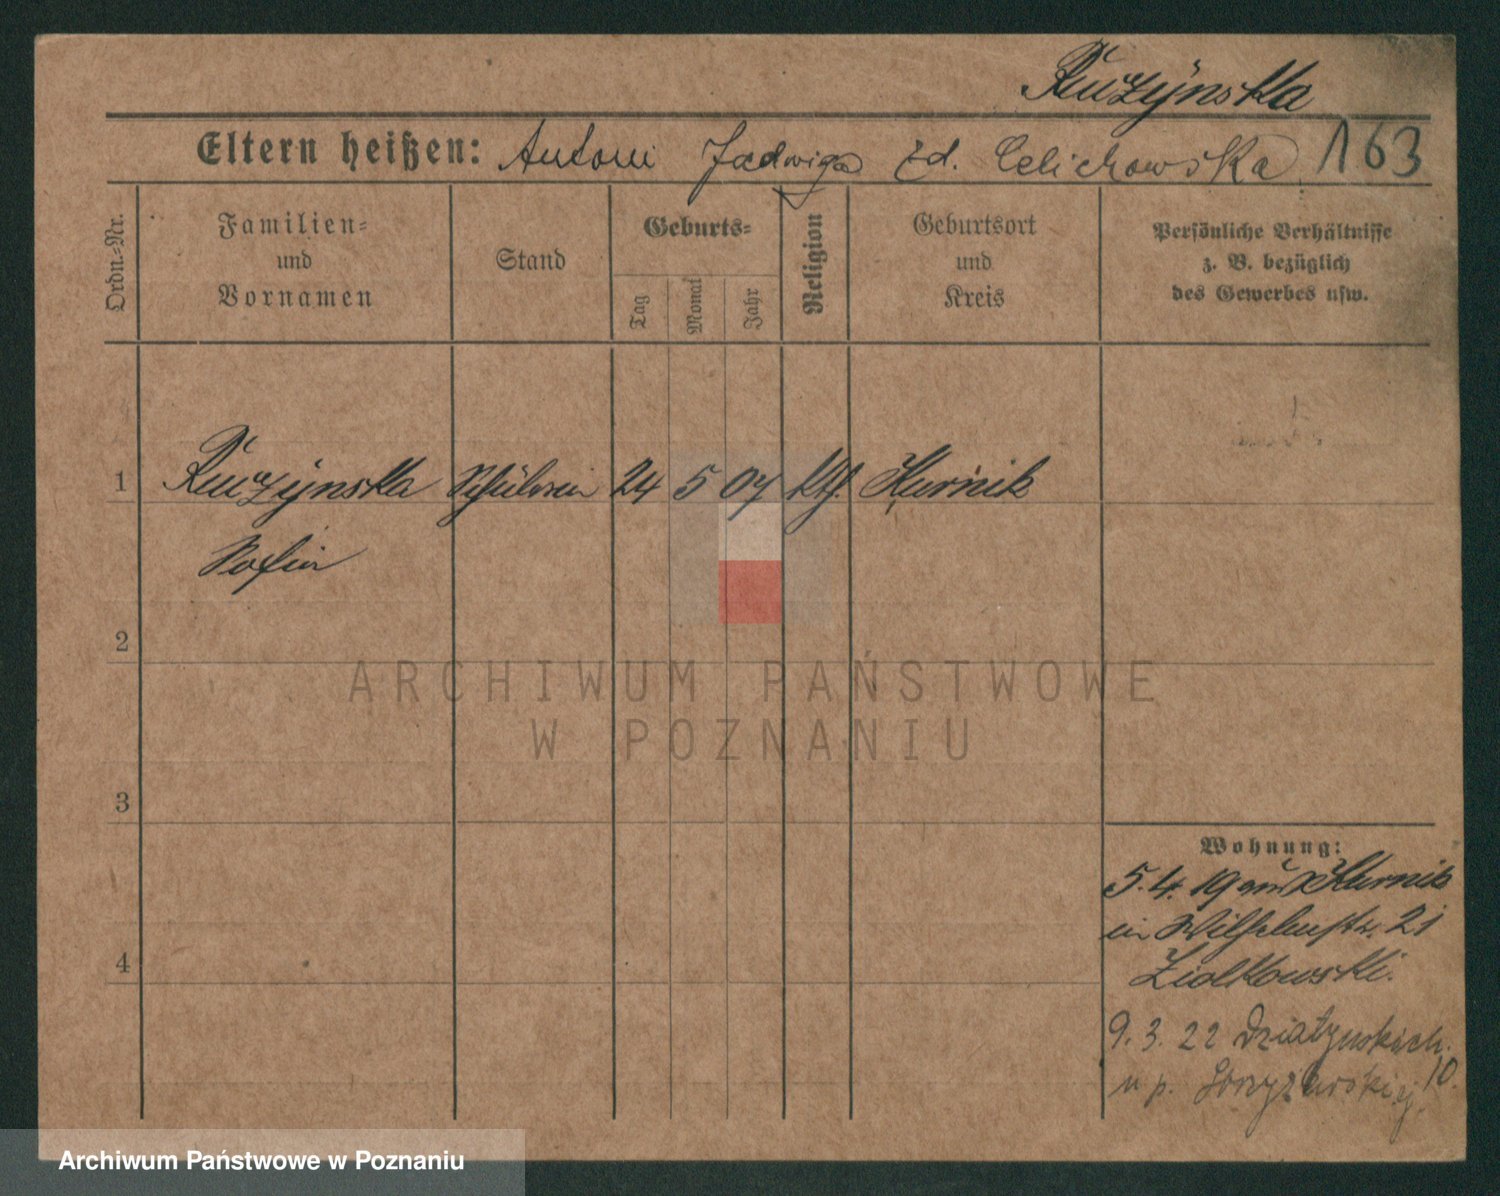 Ruczyńska
Eltern heißen: Antoni Jadwiga zd. Celichowska 163
Ordn.-Nr.
Familien-
und
Vornamen
Stand
Geburts-
Tag
Monat
Jahr
Religion
Geburtsort
und
Kreis
Persönliche Verhältnisse
z. B. bezüglich
des Gewerbes usw.
1 Ruczyńska Schülerin 24 5 07 kth. Kurnik
Sofia
2
ARCHIWUM PAŃSTWOWE
W POZNANIU
3
Wohnung:
5. 4. 19 aus Kurnik
in Wilhelmstr. 21
4
Ziolkowski.
9. 3. 22 Działyńskich 10.
u p.
Archiwum Państwowe w Poznaniu